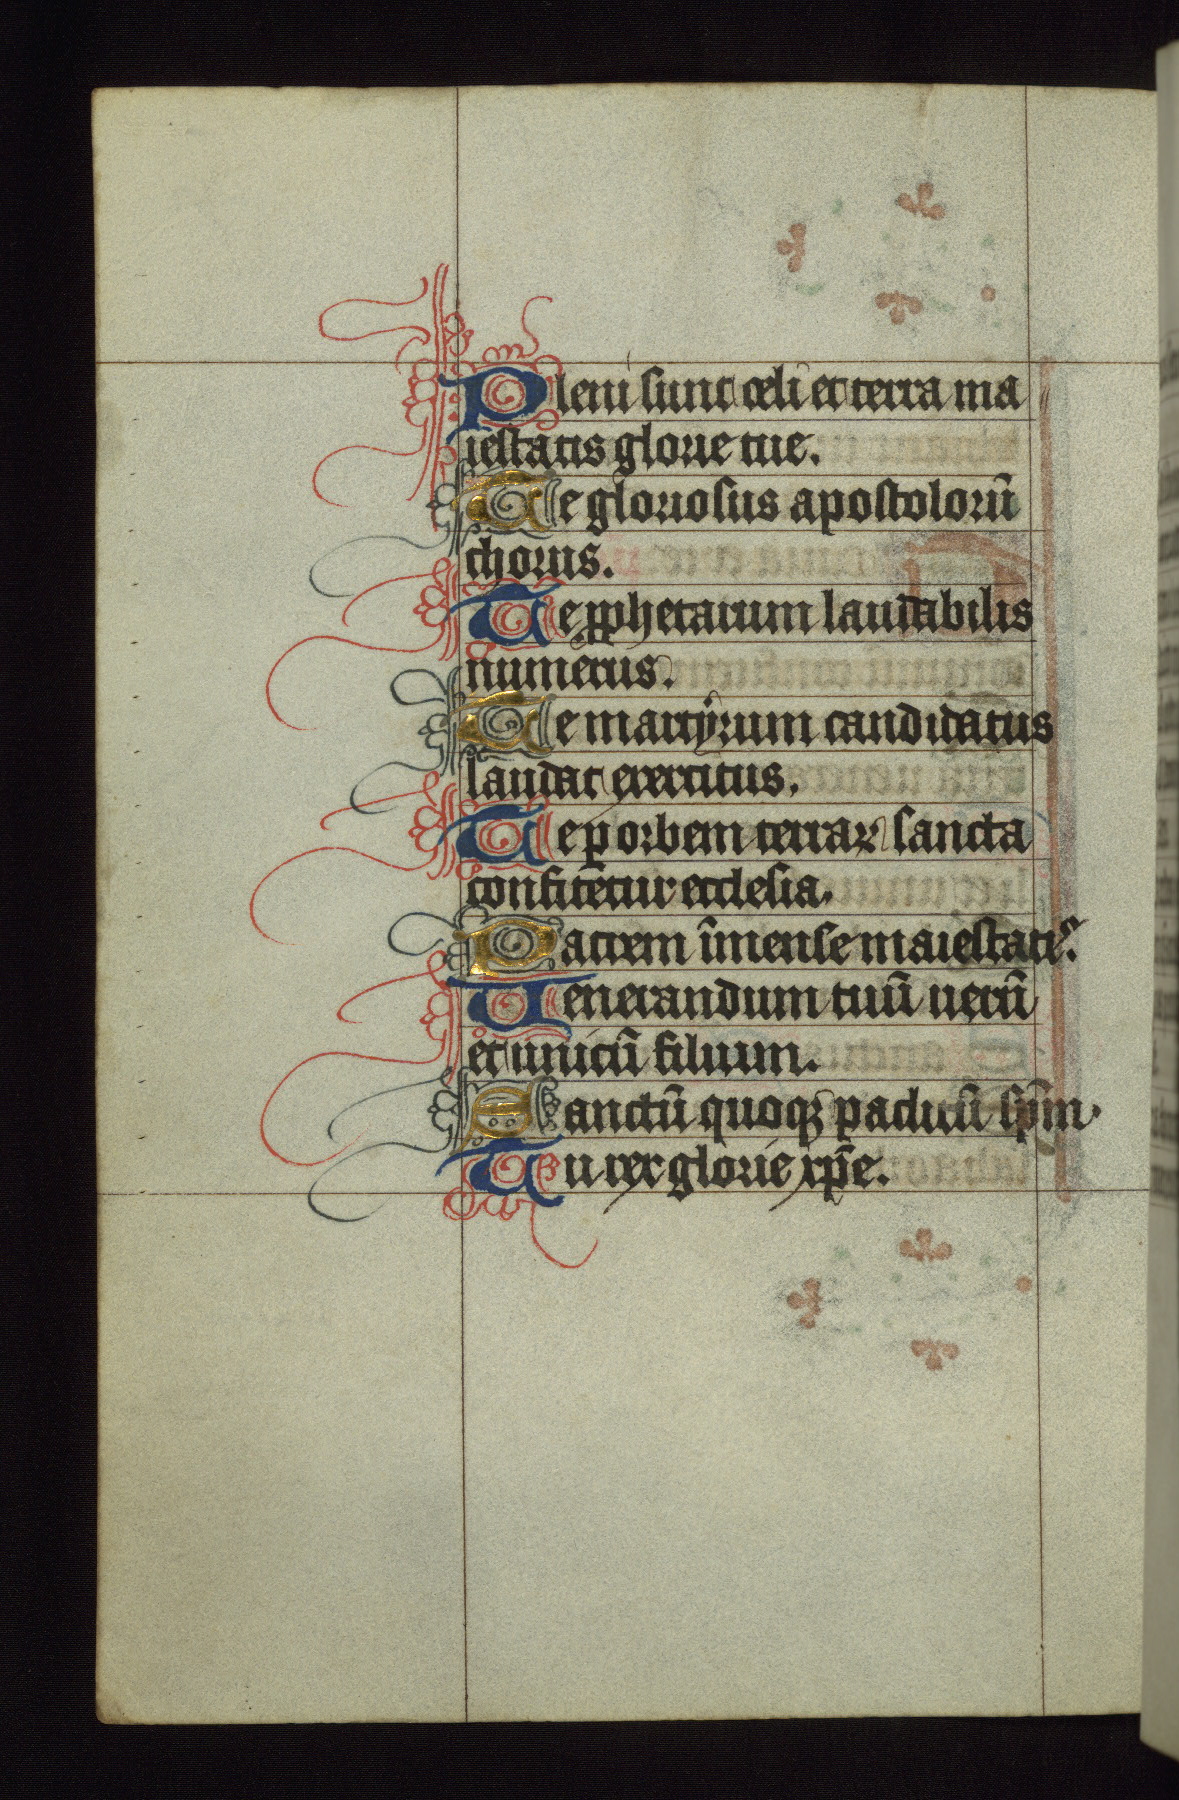 Pleni sunt celi et terra ma
iestatis glorie tue.
Te gloriosus apostolorū
chorus.
Te ꝓphetarum laudabilis
numerus.
Te martyrum candidatus
laudat exercitus.
Te ꝑ orbem terraꝝ sancta
confitetur ecclesia.
Patrem īmense maiestatis.
Uenerandum tuū uerū
et unicū filium.
Sanctū quoqꝫ paclitū sp̄m.
Tu rex glorie xp̄e.